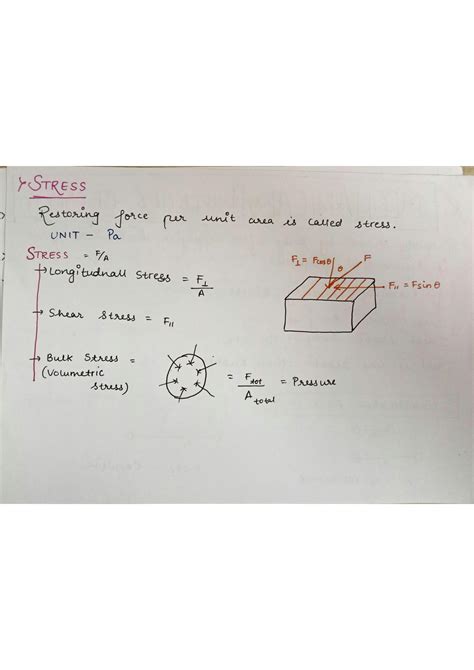 STRESS
Restoring force per unit area is called stress.
UNIT - Pa
STRESS = F/A
→ Longitudnall Stress = F⊥/A
F⊥ = Fcosθ
θ
F
F₁₁ = Fsinθ
→ Shear stress = F₁₁
→ Bulk Stress = 
(Volumetric
stress)
= F tot / A total = Pressure